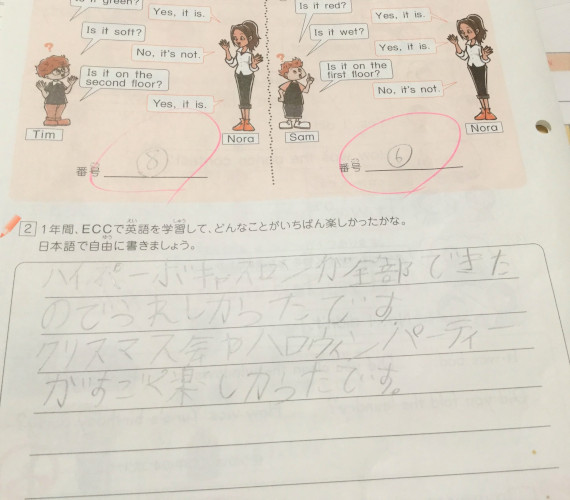 Is it green?
Yes, it is.
Is it soft?
No, it's not.
Is it on the
second floor?
Yes, it is.
Tim
Nora
番号 8
Is it red?
Yes, it is.
Is it wet?
Yes, it is.
Is it on the
first floor?
No, it's not.
Sam
Nora
番号 6
2 1年間、ECCで英語を学習して、どんなことがいちばん楽しかったかな。
日本語で自由に書きましょう。
ボキャスロンが全部できた
のでうれしかったです
クリスマス会やハロウィンパーティー
がすごく楽しかったです。